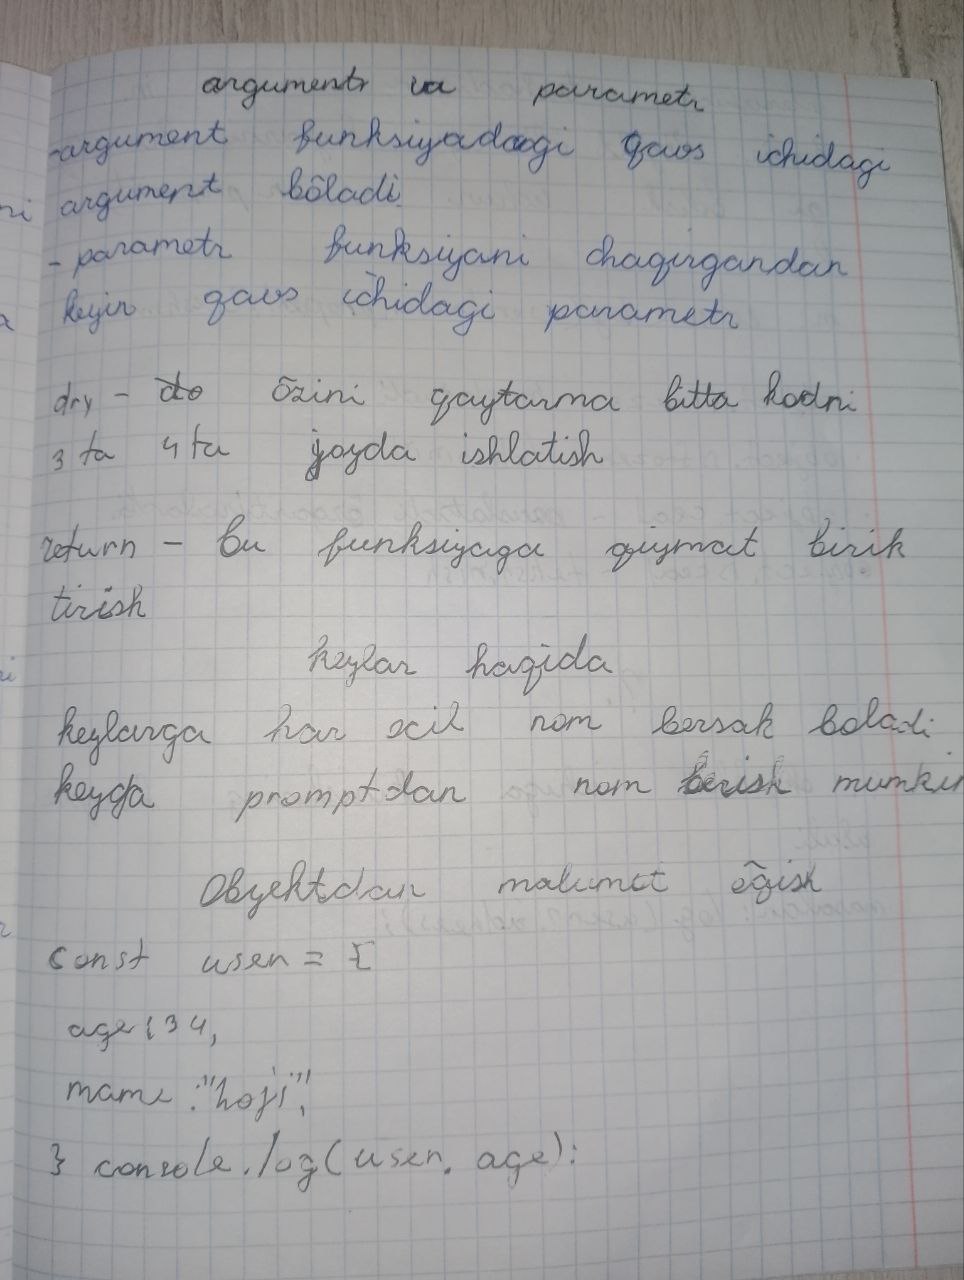 argument va parametr
-argument funksiyadagi qavs ichidagi
argument bōladi
- parametr funksiyani chaqirgandan
keyin qavs ichidagi parametr
dry - do ōzini qaytarma bitta kodni
3 ta 4 ta joyda ishlatish
return - bu funksiyaga qiymat birik
tirish
keylar haqida
keylarga har xil nom bersak boladi
keyga promptdan nom berish mumkin
Obyektdan malumot ōqish
const user = {
age: 34,
name: "hoji",
} console.log(user. age);